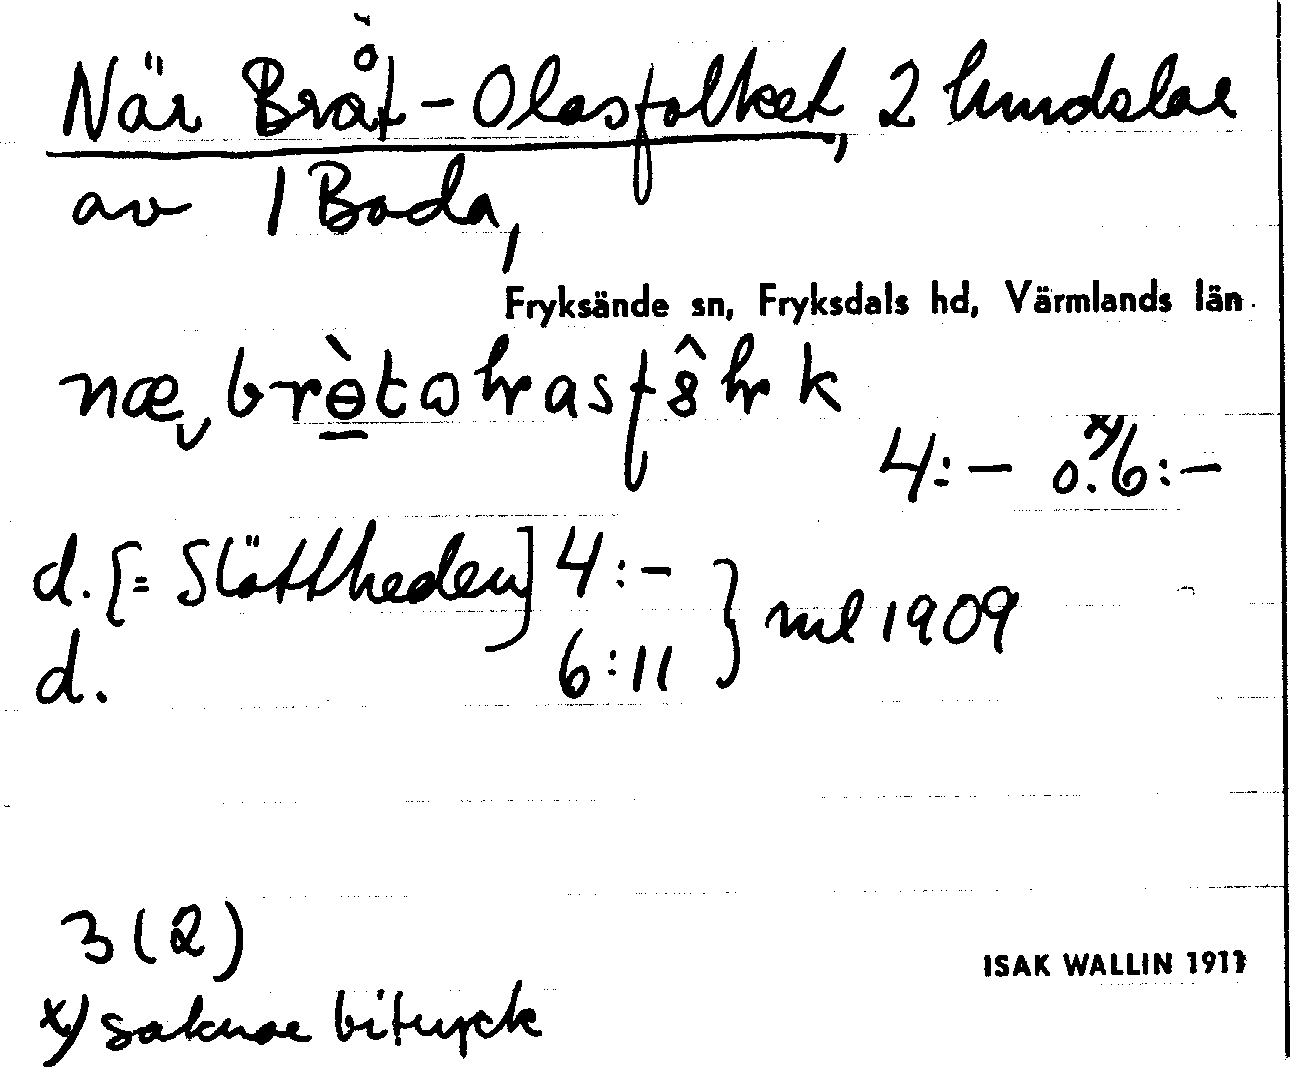 När Bråt-Olasfolket, 2 hundelar
av 1 Bada,
Fryksände sn, Fryksdals hd, Värmlands län
4:- o. x) 6:-
d. [= Slåttheden] 4:-
d. 6:11 } ml 1909
3 (2)
ISAK WALLIN 1911
x) saknar bitryck